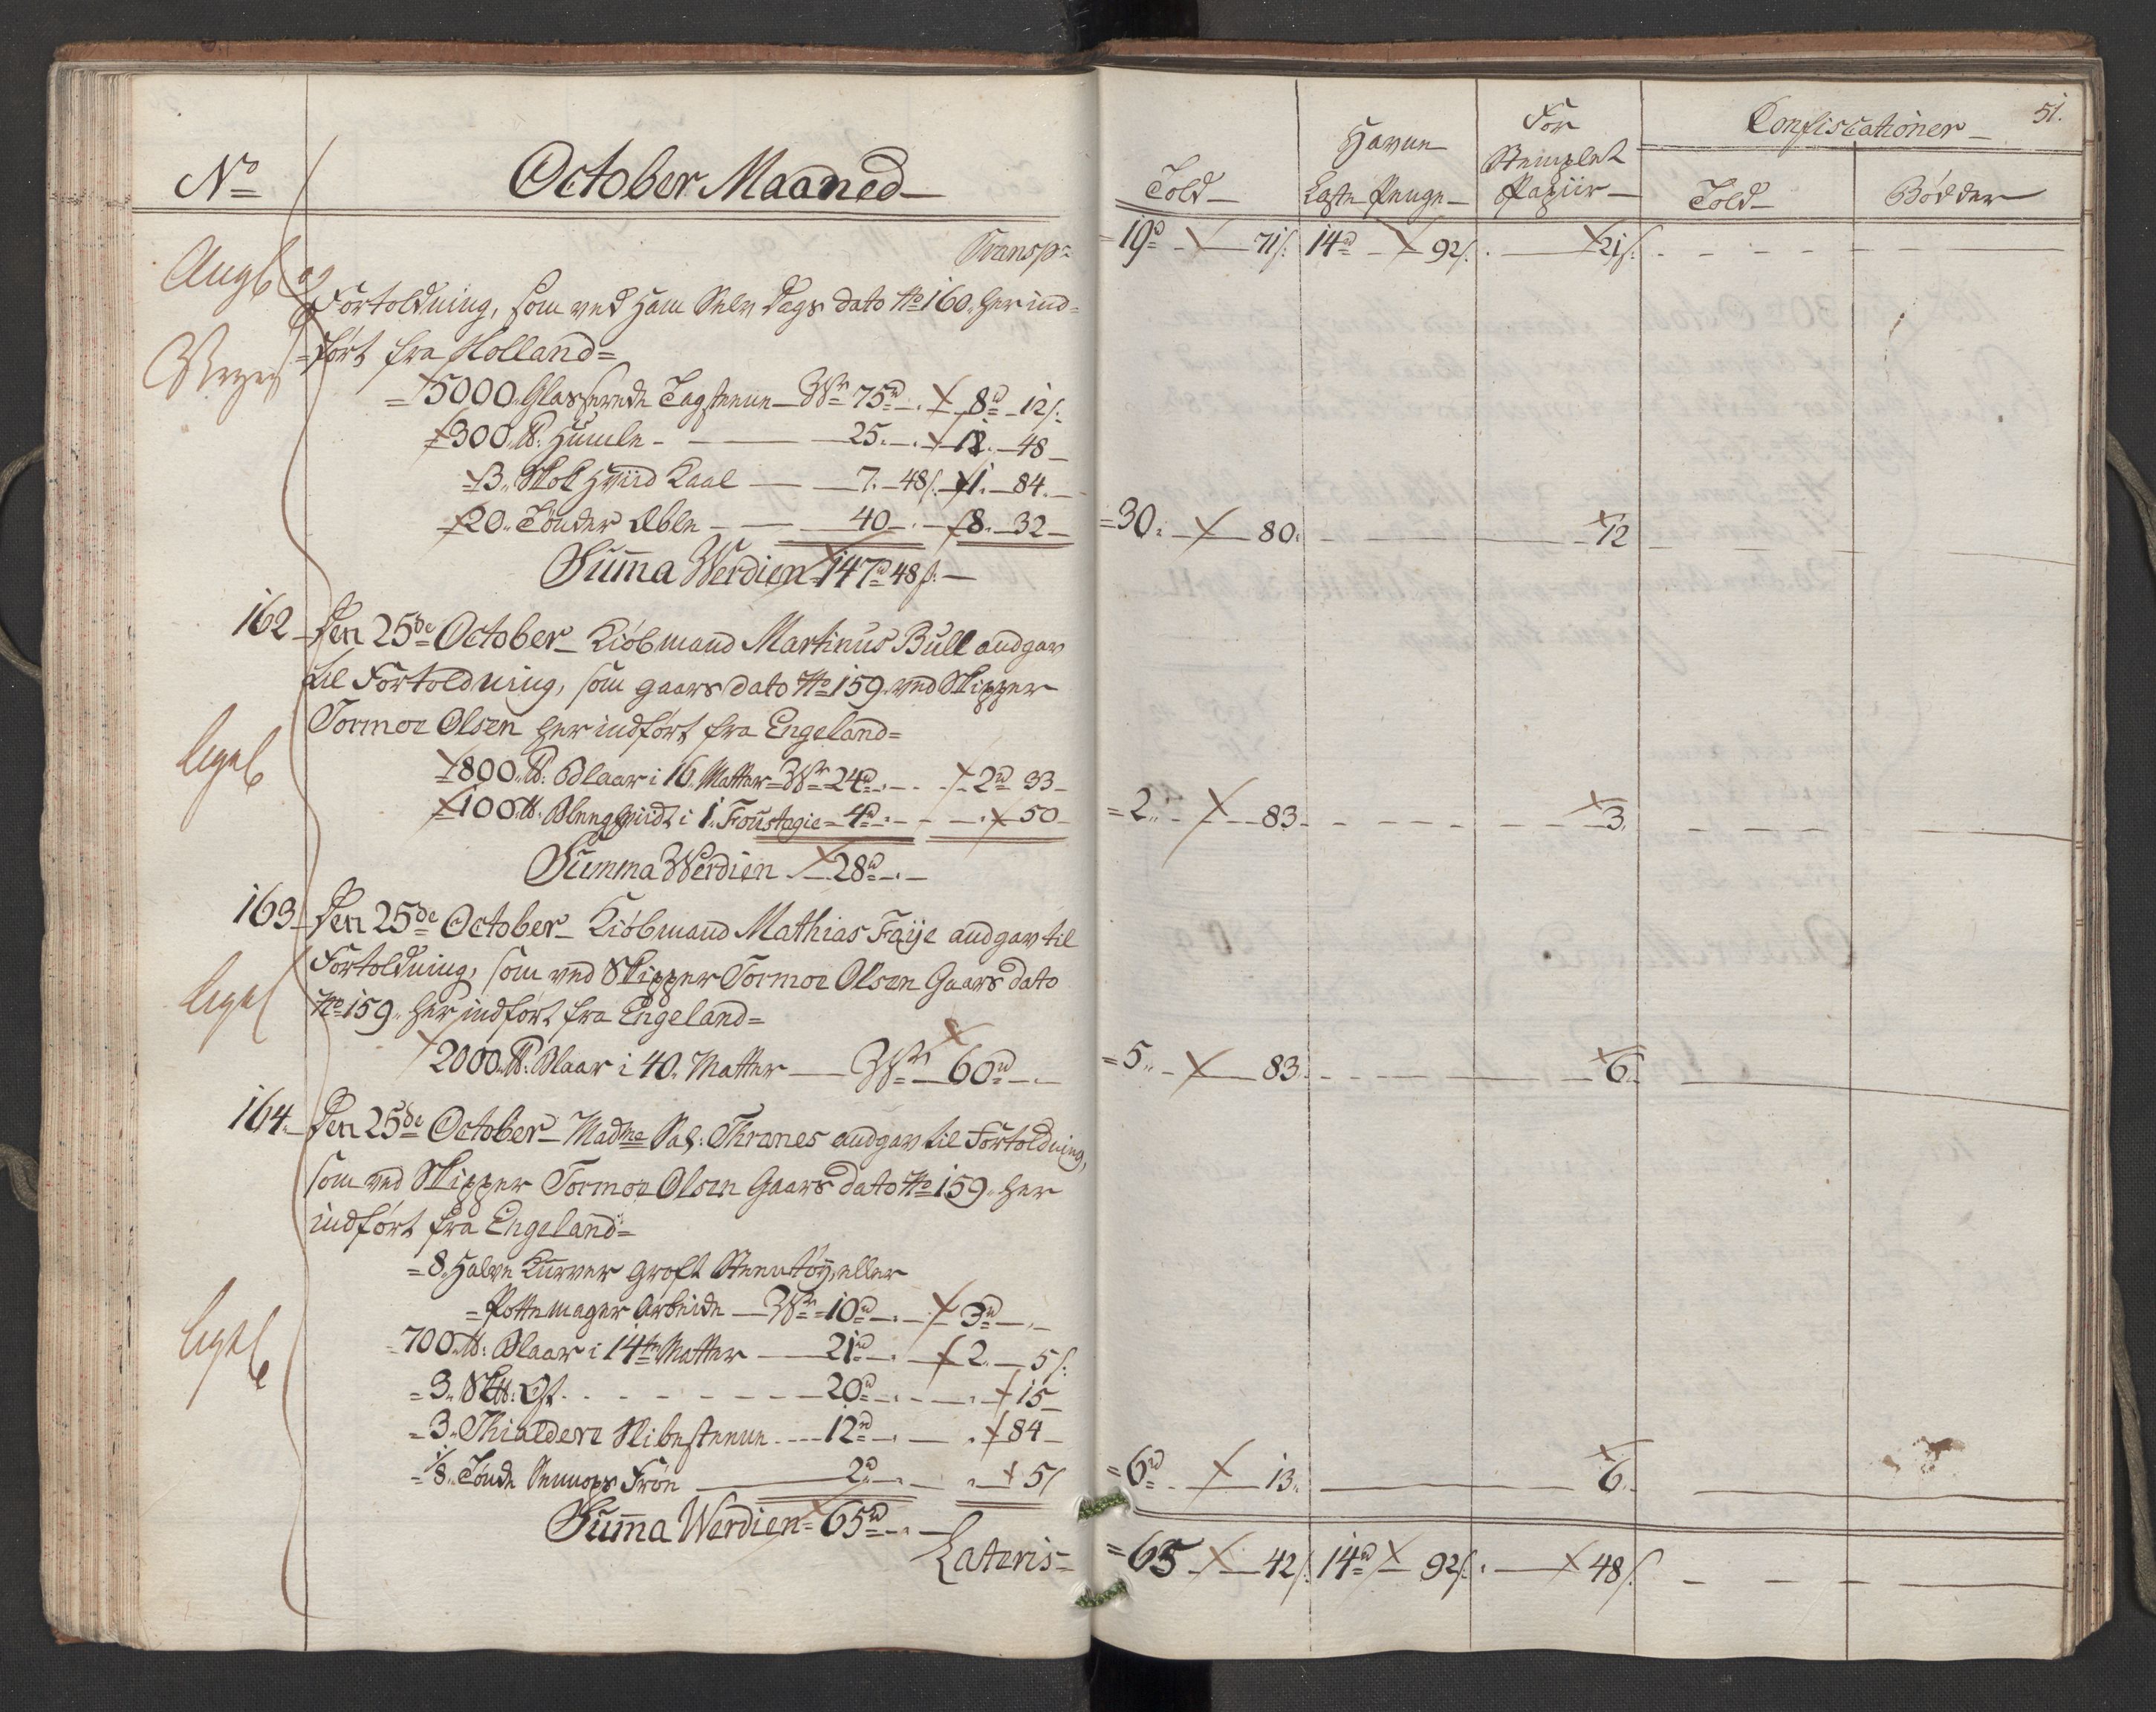 No
October Maaned
Transp:
Fortoldning, som ved Ham Selv Dags dato No 160. her ind=
=ført fra Holland=
=5000. Glasserede Tagsteene Wr 75rd - 8rd 12s:
300. ℔: Humle - 25. - 12. 48
3. Skok Hviid Kaal 7. 48s. 1. 84.
20. Tønder Æble - 40 - 8. 32
Summa Werdien 147rd 48s:
162 Den 25de October Kiøbmand Martinus Bull andgav
til Fortoldning, som gaars dato No 159. ved Skipper
Tormoe Olsen her indført fra Engeland=
1800. ℔: Blaar i 16 Matter Wr 24rd - 2rd 33
100 ℔. i 1. Foustagie 4rd - 50
Summa Werdien 28rd
163 Den 25de October Kiøbmand Mathias Faÿe andgav til
Fortoldning, som ved Skipper Tormoe Olsen Gaars dato
No 159. her indført fra Engeland=
2000. ℔. Blaar i 40. Matter Wr 60rd
164. Den 25de October Madme Sal: Thranes andgav til Fortoldning,
som ved Skipper Tormoe Olsen Gaars dato No 159. her
indført fra Engeland=
=8. Halve Kurver groft Steentøÿ, eller
=Pottemager Arbeide Wr 10rd - 3rd
=700. ℔: Blaar i 14 Matter 21rd - 2. 5s:
=3. Ost 20rd - 15
=3. Thialdere Slibesteene 12rd - 84
=1/8. Tønde Sennops Frøe 2rd - 5s
Summa Werdien= 65rd
Lateris=
51.
Told
Havne
Læste Penge
For
Stemplet
Papiir
Confiscationer
Told
Bødder
=19rd 71s: 14rd 92s. 21s:
=30. 80. 12
=2. 83 3.
=5. 83. 6.
=6rd 13. 6.
=65 42s. 14rd 92s. 48s.